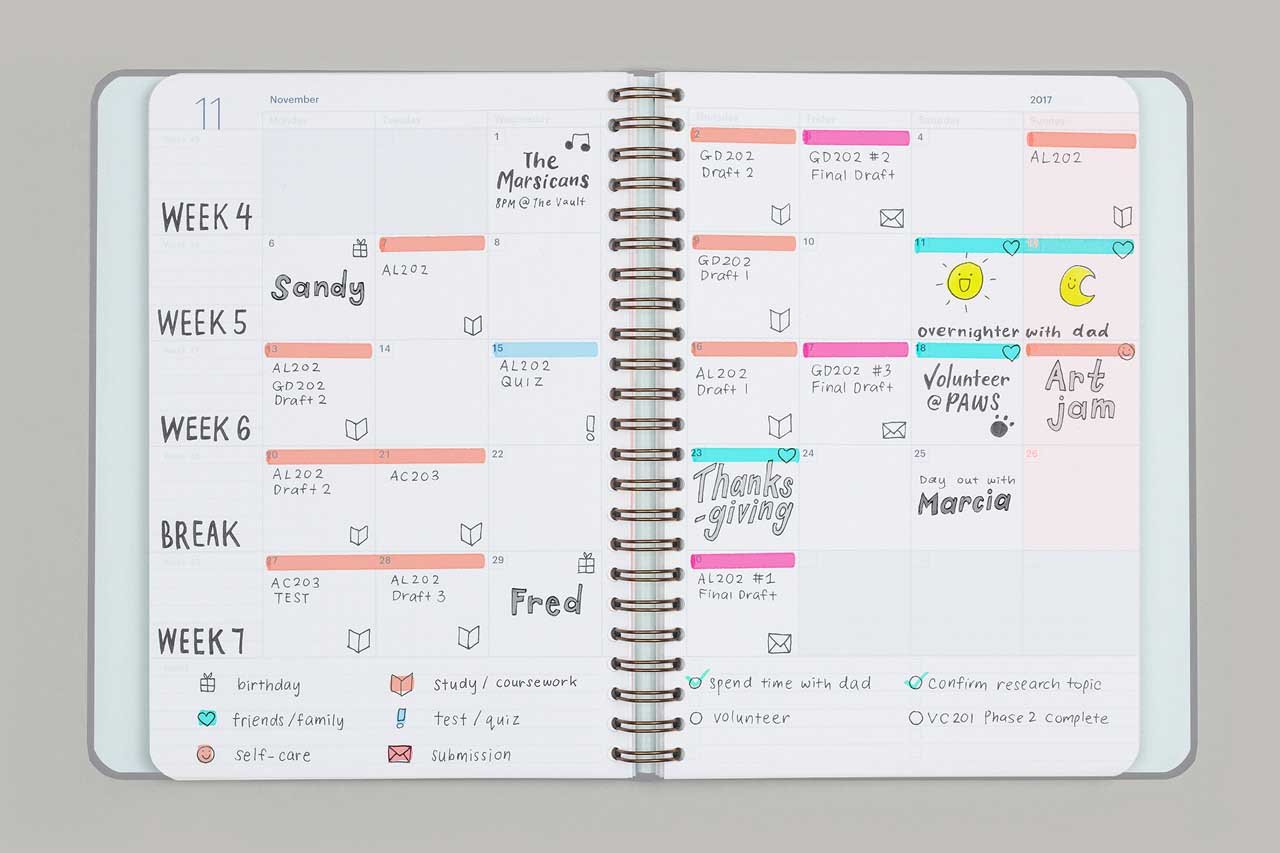 11
November
2017
Monday
Tuesday
Wednesday
Thursday
Friday
Saturday
Sunday
WEEK 4
1
The
Marsicans
8PM @ The Vault
2
GD202
Draft 2
3
GD202 #2
Final Draft
4
AL202
WEEK 5
6
Sandy
7
AL202
8
9
GD202
Draft 1
10
11
overnighter with dad
WEEK 6
13
AL202
GD202
Draft 2
14
15
AL202
QUIZ
16
AL202
Draft 1
17
GD202 #3
Final Draft
18
Volunteer
@ PAWS
Art
jam
BREAK
20
AL202
Draft 2
21
AC203
22
23
Thanks
-giving
24
25
Day out with
Marcia
26
WEEK 7
27
AC203
TEST
28
AL202
Draft 3
29
Fred
AL202 #1
Final Draft
birthday
study / coursework
friends/family
test / quiz
self-care
submission
spend time with dad
Confirm research topic
volunteer
VC201 Phase 2 Complete